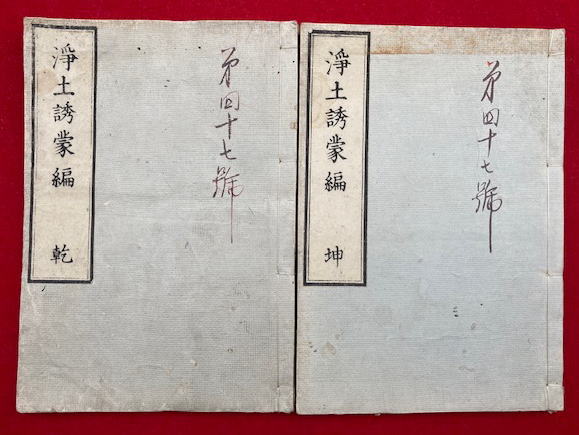 淨土誘蒙編 乾
第四十七號
淨土誘蒙編 坤
第四十七號